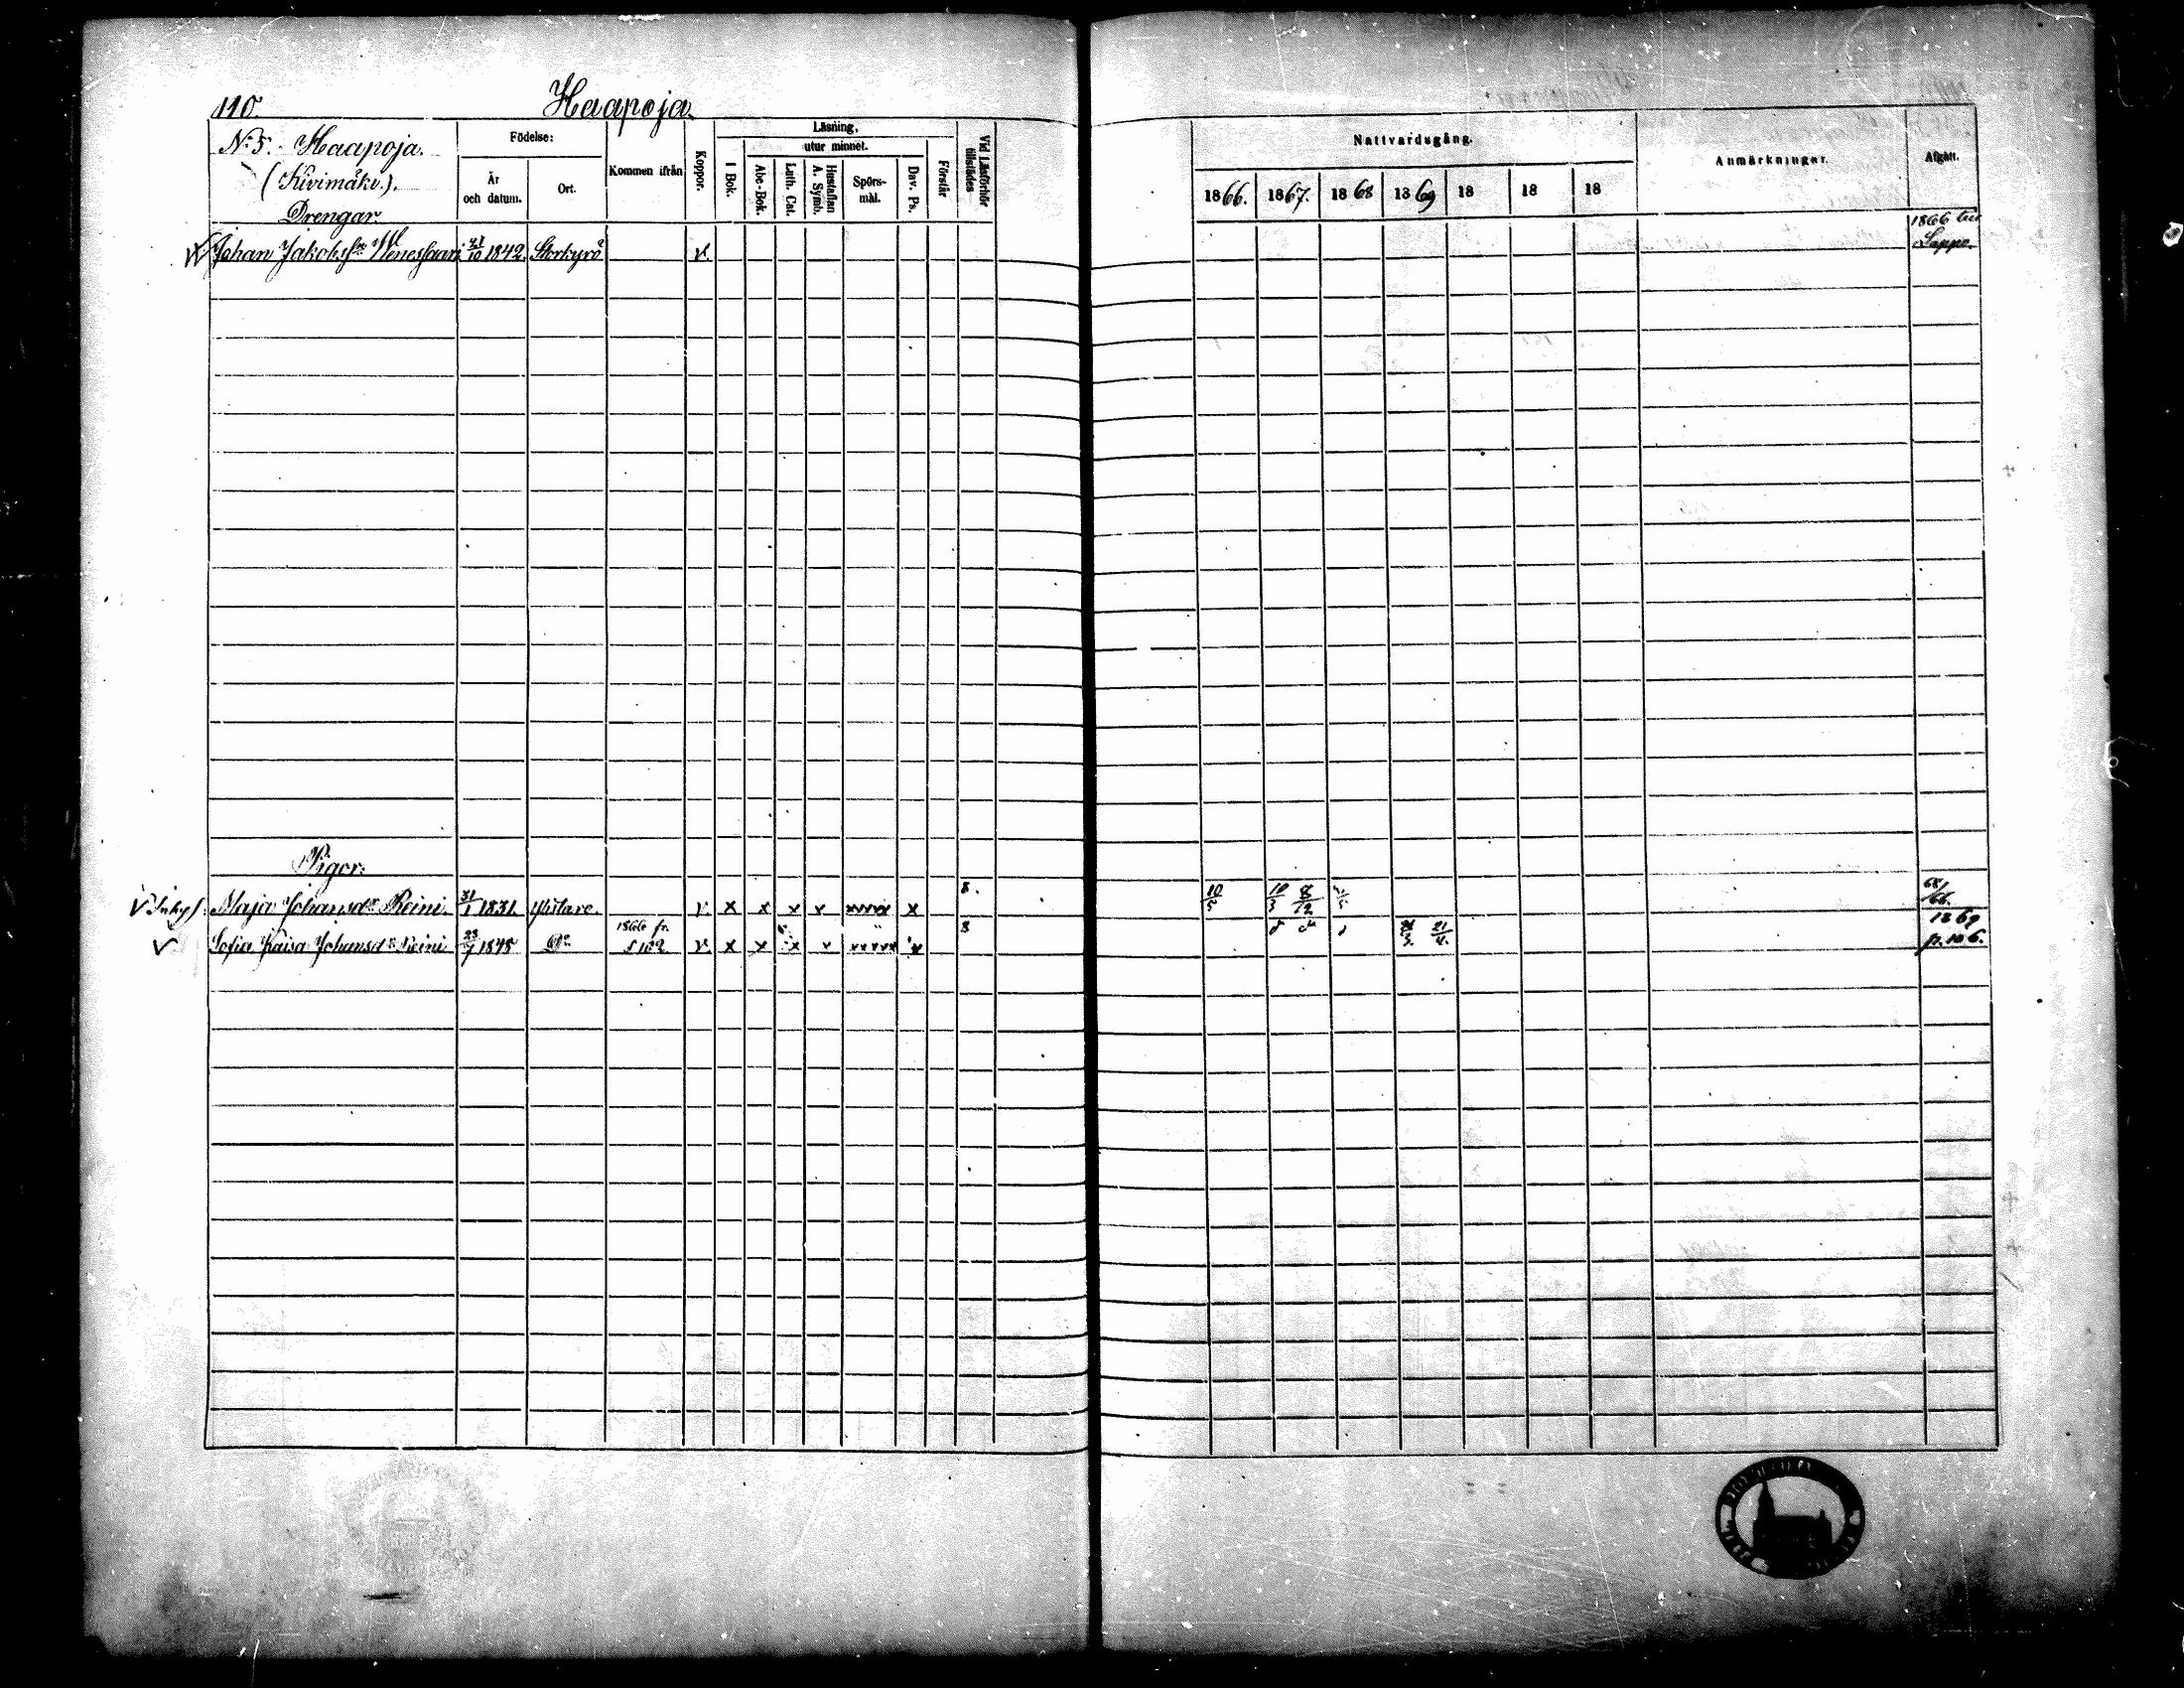 110. Haapoja.
N:o 5. Haapoja.
(Kivimäki).
Drengar
Födelse:
År och datum.
Ort.
Kommen ifrån
Koppor.
Läsning,
utur minnet.
I Bok.
Abc-Bok.
Luth. Cat.
Hustaflan A. Symb.
Spörs-mål.
Dav. Ps.
Förstår
Vid Läsförhör tillstädes
Nattvardsgång.
1866. 1867. 1868 1869 18 18 18
Anmärkningar.
Afgått.
Johan Jakobss:n Wenessaari 21/10 1842. Storkyrö v. 1866 till Lappo.
Piger:
Maja Johansd:r Reini. 31/1 1831. Ylistaro. v. x x x x xxxx x 8. 10/5 10/3 8/12 68/66.
Sofia Kaisa Johansd:r Reini 23/7 1845 D:o 1866 fr. v. x x x x xxxxx x 8 1869 p. 106.